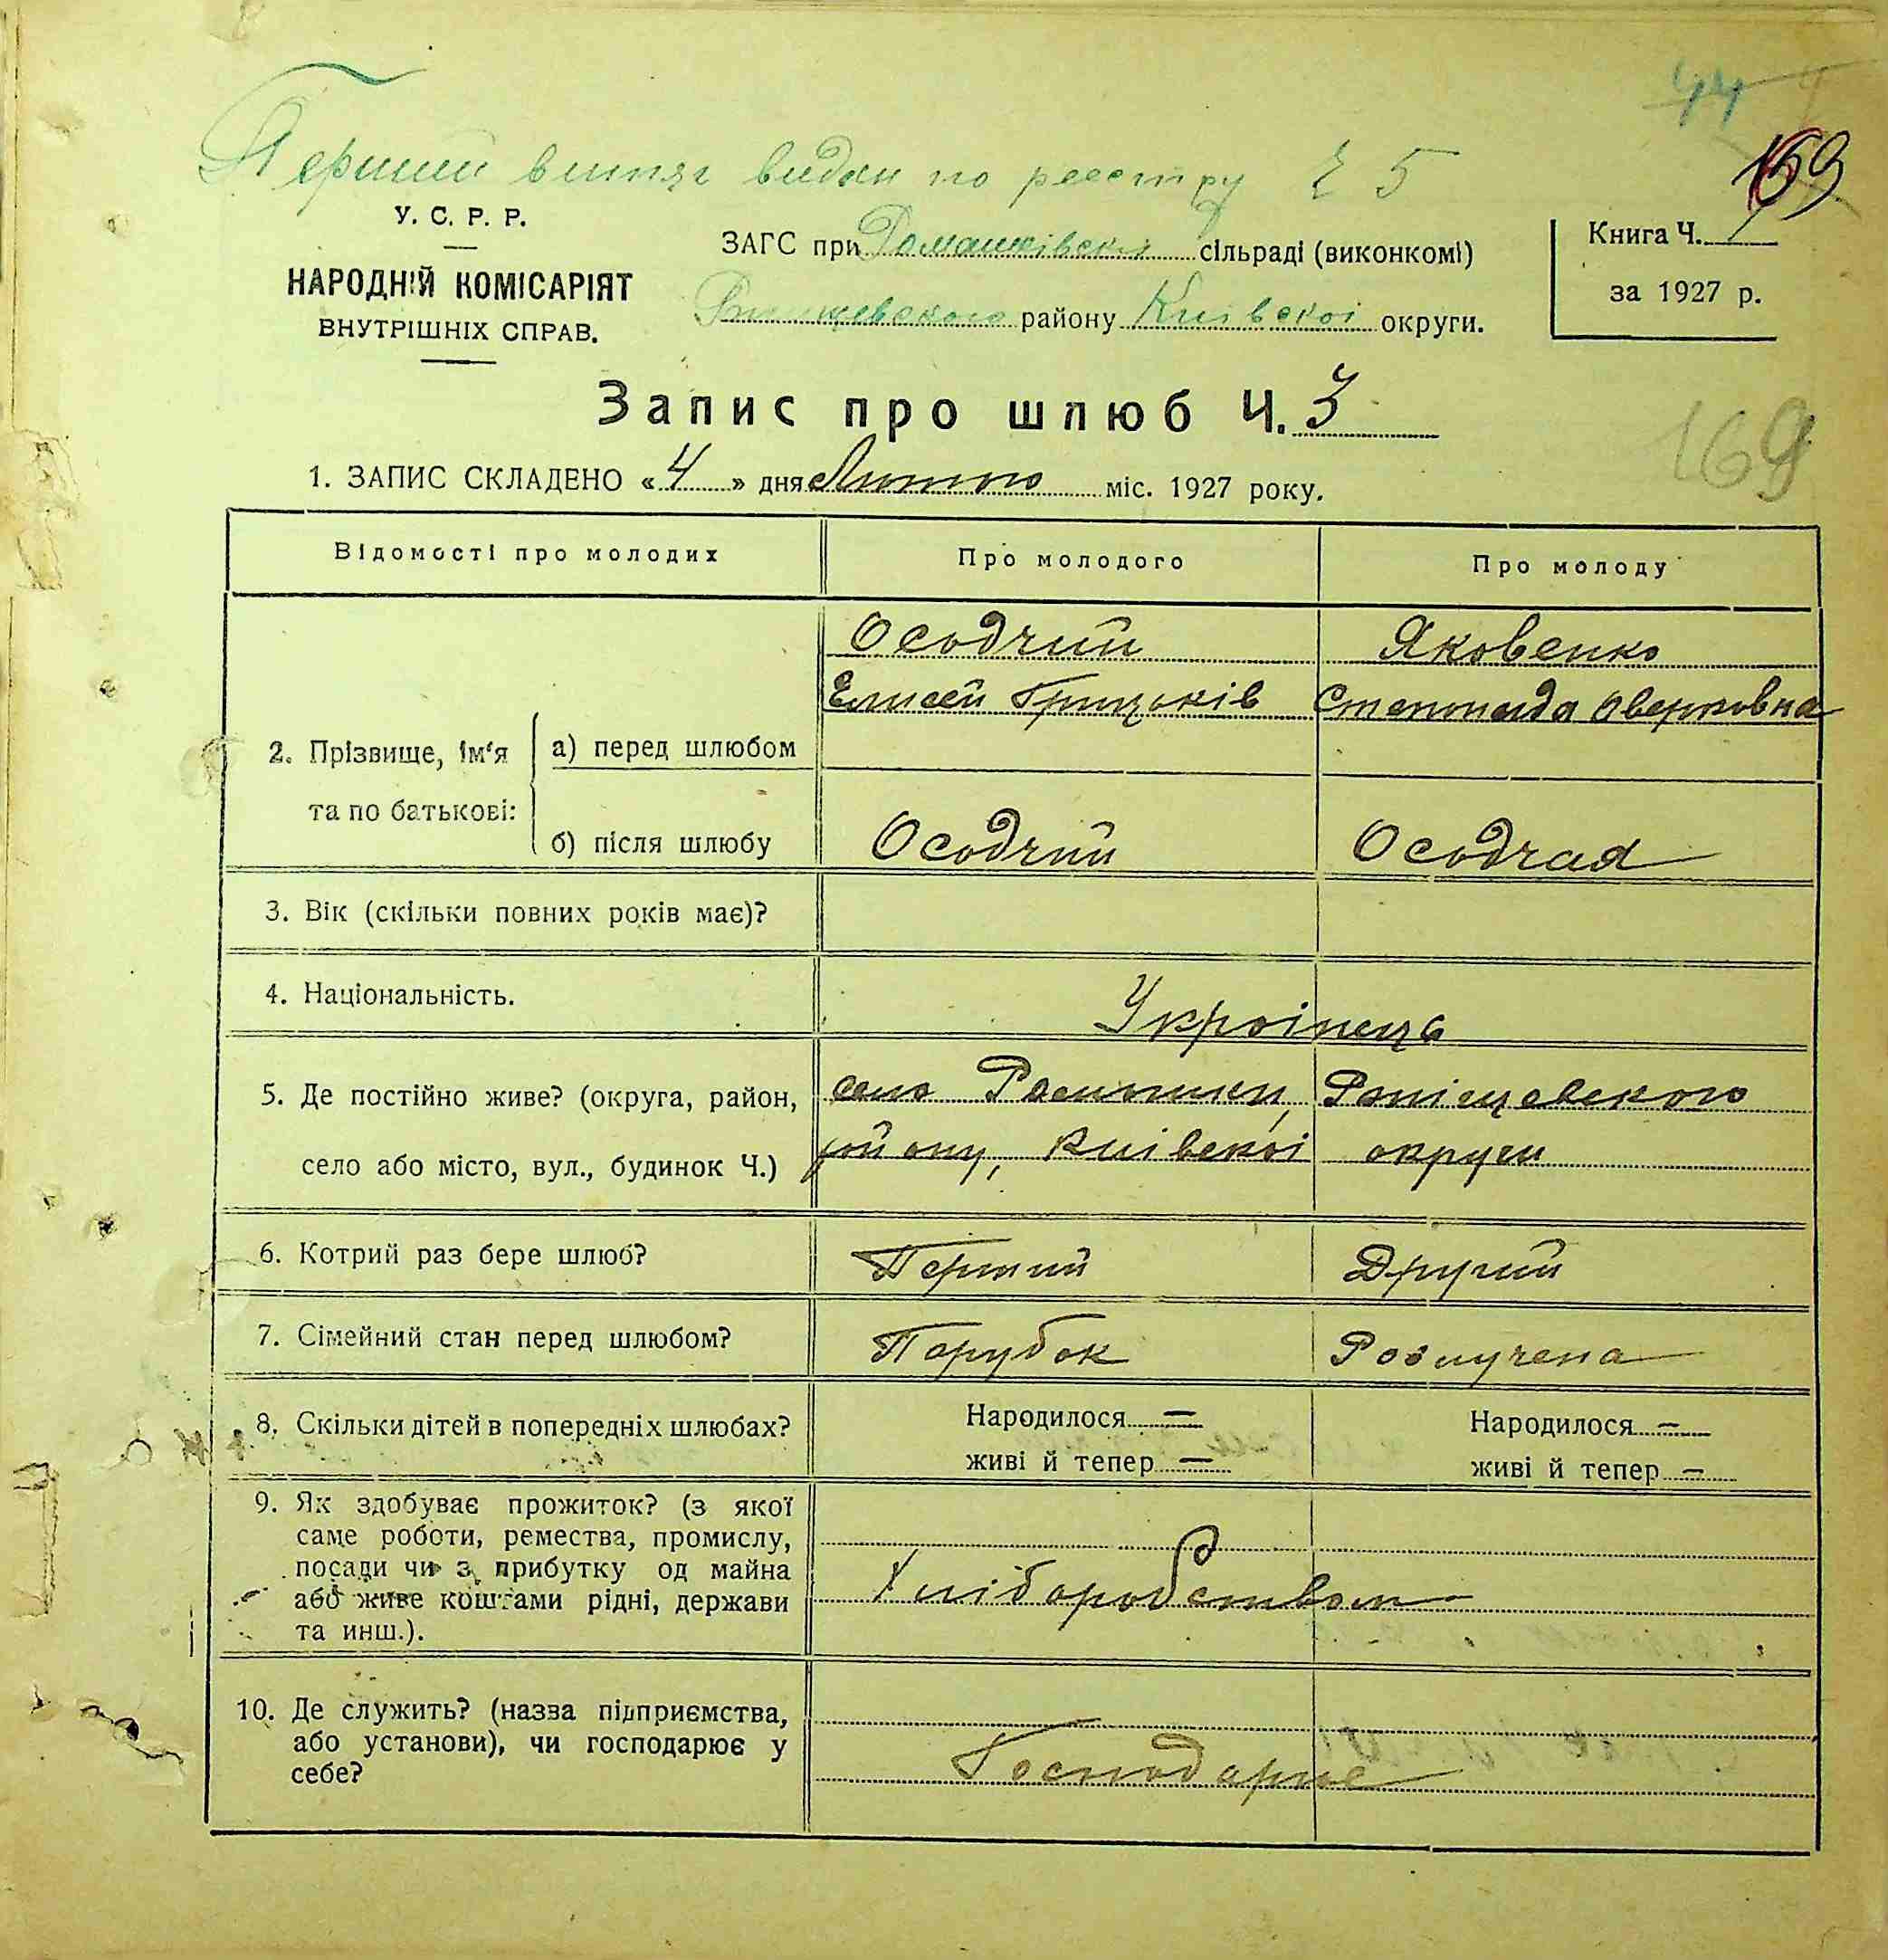 44
Перший витяг видан по реестру № 5
169
У. С. Р. Р.
НАРОДНІЙ КОМІСАРІЯТ
ВНУТРІШНІХ СПРАВ.
ЗАГС при Ромашківскі сільраді (виконкомі)
Ржищевского району Київскоі округи.
Книга Ч.
за 1927 р.
Запис про шлюб Ч. 3
169
1. ЗАПИС СКЛАДЕНО «4» дня Лютого міс. 1927 року.
Відомості про молодих
Про молодого
Про молоду
2. Прізвище, ім'я та по батькові:
а) перед шлюбом
Осодчий
Елисей Грицьків
Яковенко
Степонида Оверковна
б) після шлюбу
Осодчий
Осодчая
3. Вік (скільки повних років має)?
4. Національність.
Украінець
5. Де постійно живе? (округа, район,
село або місто, вул., будинок Ч.)
село Ромашки, Ржіщевского
району, Киівскоі округи
6. Котрий раз бере шлюб?
Перший
Другий
7. Сімейний стан перед шлюбом?
Парубок
Розлучена
8. Скільки дітей в попередніх шлюбах?
Народилося —
живі й тепер —
Народилося —
живі й тепер —
9. Як здобуває прожиток? (з якої
саме роботи, ремества, промислу,
посади чи з прибутку од майна
або живе коштами рідні, держави
та инш.).
Хліборобством
10. Де служить? (назва підприємства,
або установи), чи господарює у
себе?
Господарює